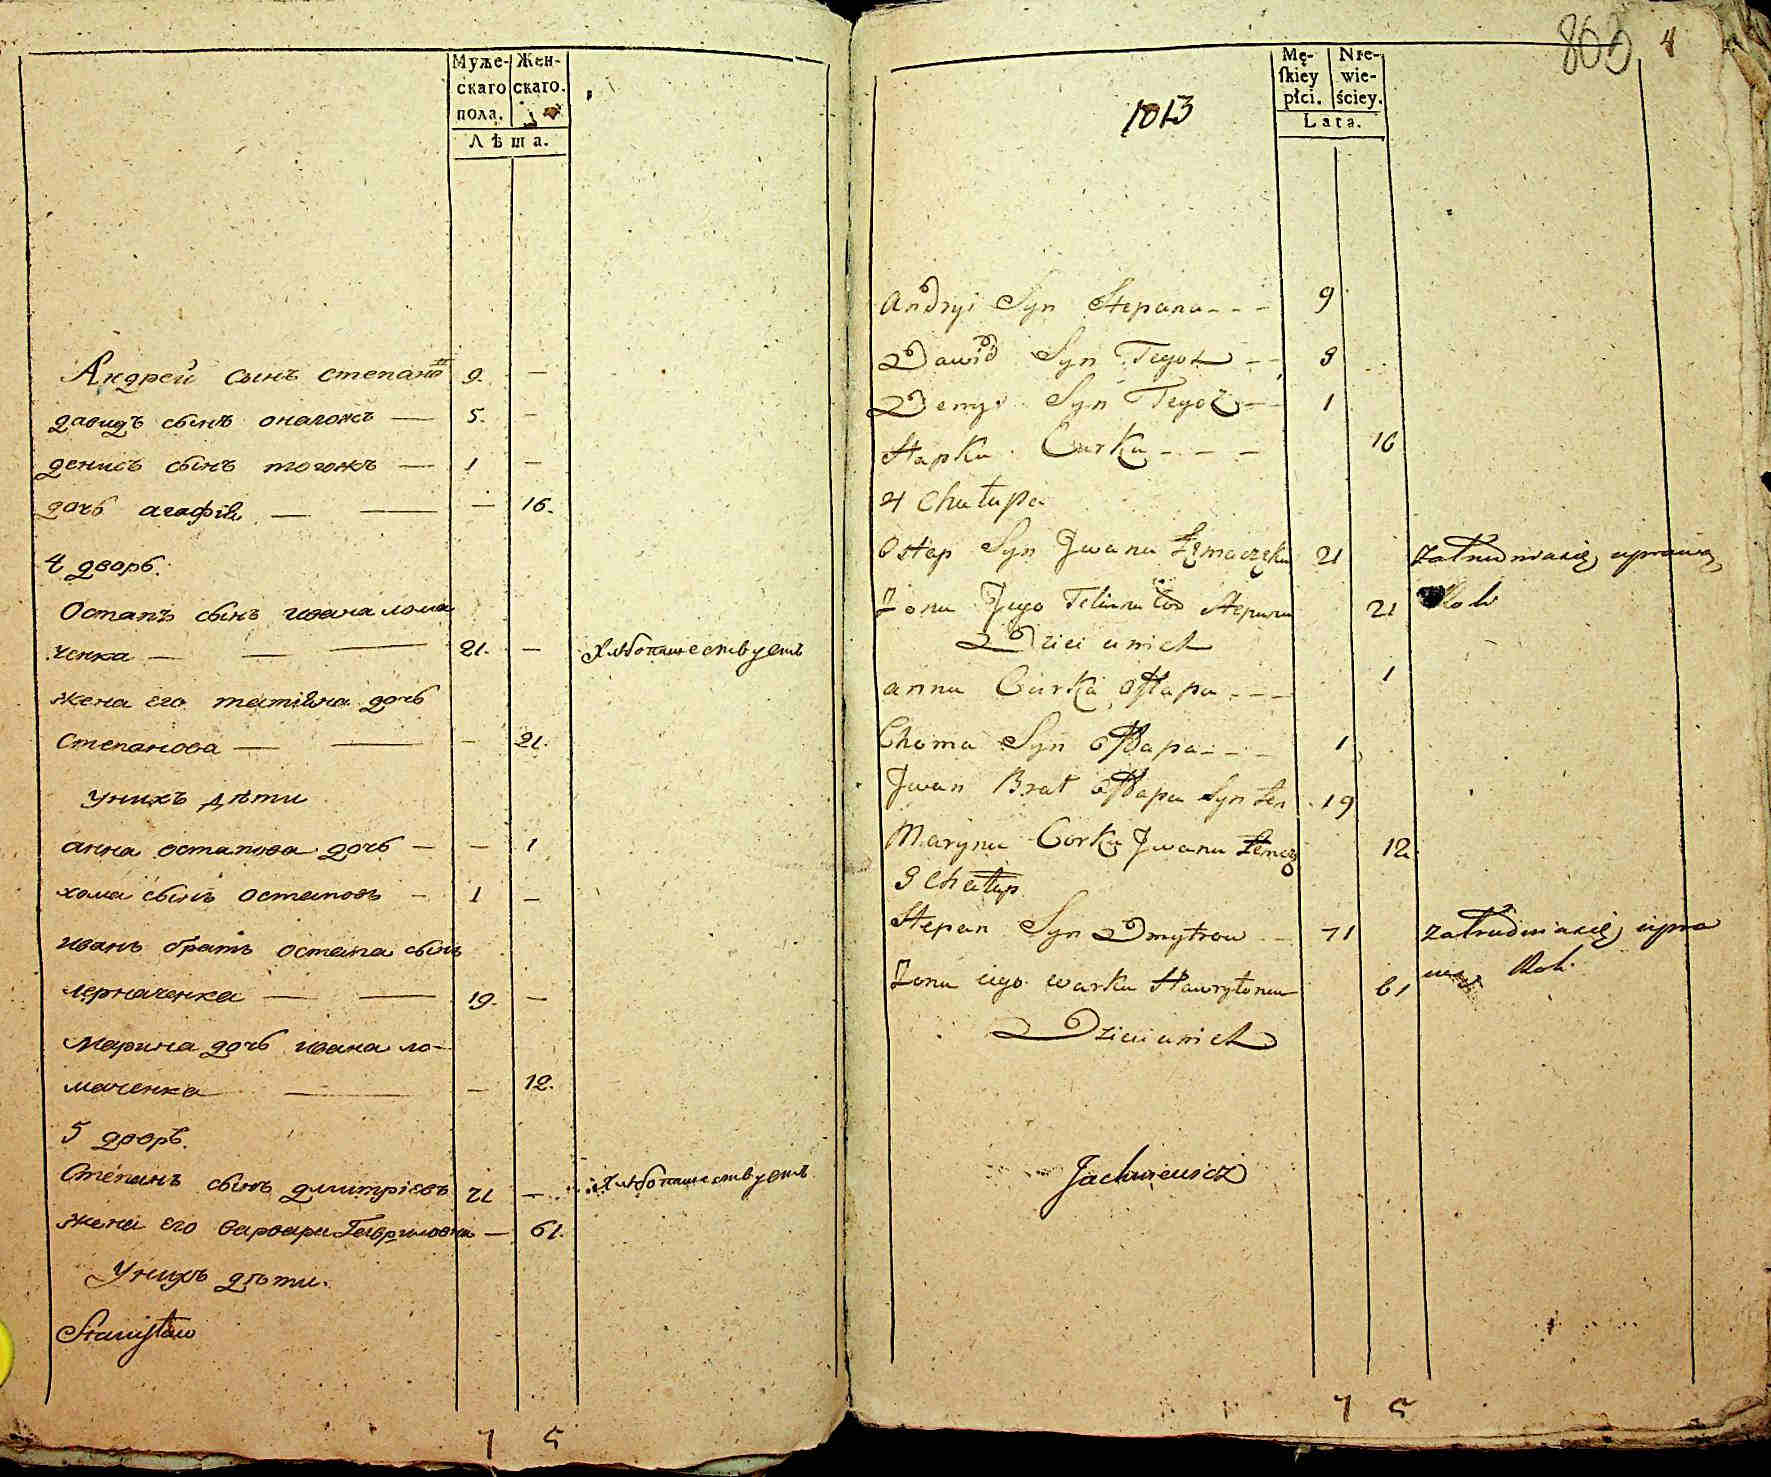 Муже-
скаго
пола.
Жен-
скаго.
Лѣта.
Андрей сынъ степанъ 9. —
давидъ сынъ оналожъ — 5. —
денисъ сынъ тогожъ — 1 —
дочь агафія — — — 16.
4 дворъ.
Остапъ сынъ ивана лома
ченка — — — 21. — Хлѣбопашествуетъ
жена его татіяна дочь
Степанова — — — 21.
Унихъ дѣти
анна остапова дочь — — 1
хома сынъ остаповъ — 1 —
иванъ братъ остапа сынъ
лермаченка — — 19. —
Марина дочь ивана ло-
маченка — — 12.
5 дворъ.
Степанъ сынъ дмитріевъ 71 — Хлѣбопашествуетъ
жена его варвара Гавриловна — 61.
Унихъ дѣти.
Stanisław
7 5
803 4
1013
Mę-
skiey
płci.
Nie-
wie-
ściey.
Lata.
Andryi Syn Stepana - - - 9
Dawid Syn Tegoż - - 5
Demyi Syn Tegoż - - 1
Hapka Curka - - - 16
4 Chałupa
Ostap Syn Jwana Łemaczęka 21 Zatrudniasię uprawą
Roli
Żona Jego Teliana Cod Stepana 21
Dzieci unich
anna Curka Ostapa - - - 1
Choma Syn Ostapa - - - 1
Jwan Brat Ostapa Syn Łen 19
Maryna Corka Jwana Łemcz 12
5 Chałup
Stepan Syn Dmytrow - - 71 Zatrudniasię upra
wą Roli
Żona iego warka Hawryłowa 61
Dzieci unich
Jachniewicz
7 5